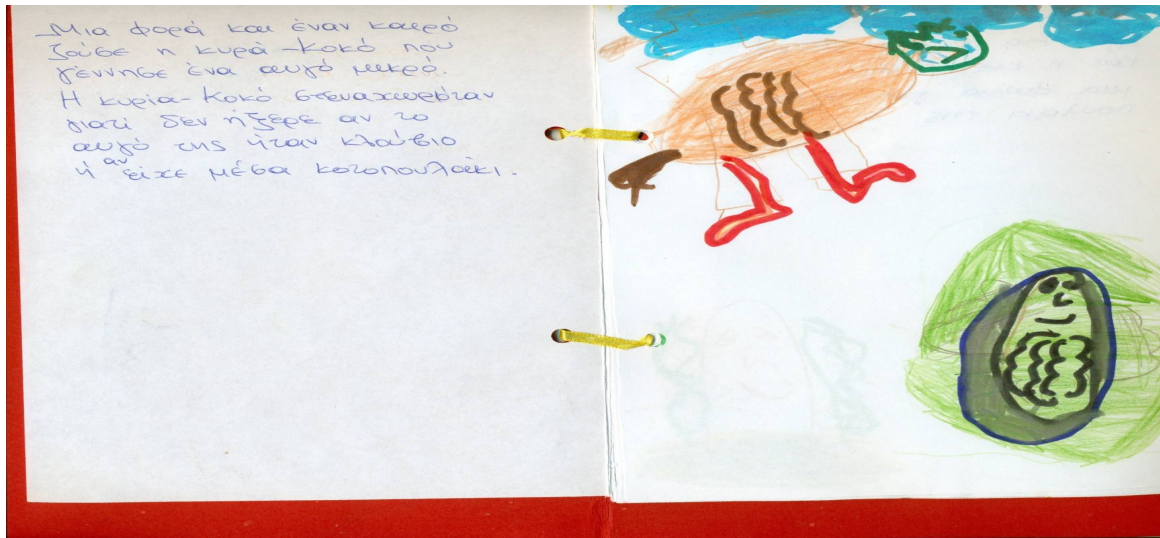 Μια φορά και έναν καιρό
ζούσε η κυρά-Κοκό που
γέννησε ένα αυγό μικρό.
Η κυρία-Κοκό στεναχωριόταν
γιατί δεν ήξερε αν το
αυγό της ήταν κλούβιο
ή αν είχε μέσα κοτοπουλάκι.